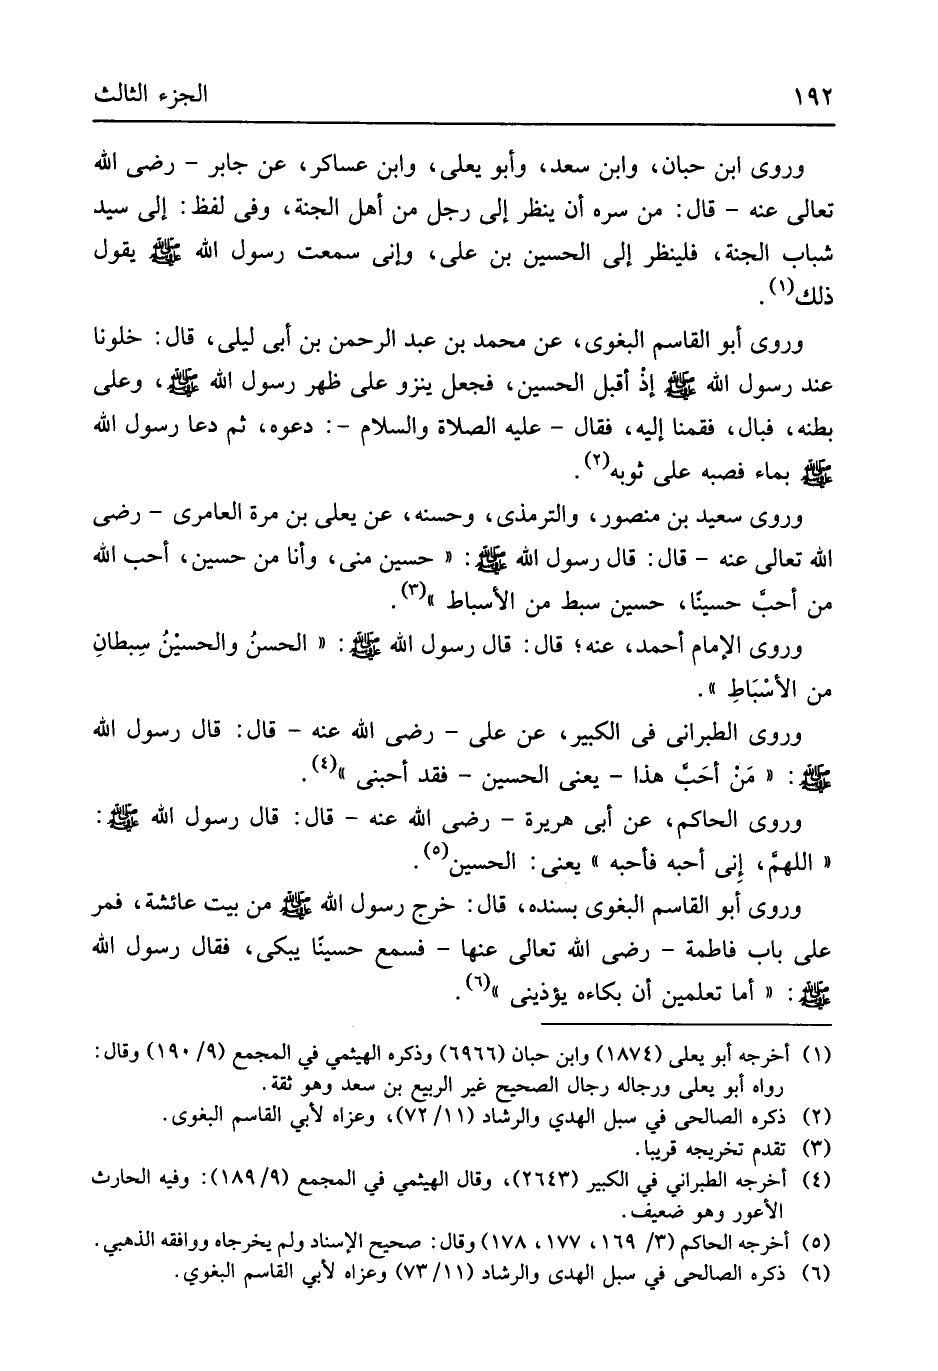 ١٩٢
الجزء الثالث
وروى ابن حبان، وابن سعد، وأبو يعلى، وابن عساكر، عن جابر - رضى الله
تعالى عنه - قال: من سره أن ينظر إلى رجل من أهل الجنة، وفى لفظ: إلى سيد
شباب الجنة، فلينظر إلى الحسين بن على، وإنى سمعت رسول الله ﷺ يقول
ذلك(١).
وروى أبو القاسم البغوى، عن محمد بن عبد الرحمن بن أبى ليلى، قال: خلونا
عند رسول الله ﷺ إذْ أقبل الحسين، فجعل ينزو على ظهر رسول الله ﷺ، وعلى
بطنه، فبال، فقمنا إليه، فقال - عليه الصلاة والسلام -: دعوه، ثم دعا رسول الله
ﷺ بماء فصبه على ثوبه(٢).
وروى سعيد بن منصور، والترمذى، وحسنه، عن يعلى بن مرة العامرى - رضى
الله تعالى عنه - قال: قال رسول الله ﷺ: « حسين منى، وأنا من حسين، أحب الله
من أحبَّ حسينًا، حسين سبط من الأسباط »(٣).
وروى الإمام أحمد، عنه؛ قال: قال رسول الله ﷺ: « الحسنُ والحسيْنُ سِبطانِ
من الأسْبَاطِ ».
وروى الطبرانى فى الكبير، عن على - رضى الله عنه - قال: قال رسول الله
ﷺ: « مَنْ أحَبَّ هذا - يعنى الحسين - فقد أحبنى »(٤).
وروى الحاكم، عن أبى هريرة - رضى الله عنه - قال: قال رسول الله ﷺ:
« اللهمَّ، إِنى أحبه فأحبه » يعنى: الحسين(٥).
وروى أبو القاسم البغوى بسنده، قال: خرج رسول الله ﷺ من بيت عائشة، فمر
على باب فاطمة - رضى الله تعالى عنها - فسمع حسينًا يبكى، فقال رسول الله
ﷺ: « أما تعلمين أن بكاءه يؤذينى »(٦).
(١) أخرجه أبو يعلى (١٨٧٤) وابن حبان (٦٩٦٦) وذكره الهيثمي في المجمع (٩/ ١٩٠) وقال:
رواه أبو يعلى ورجاله رجال الصحيح غير الربيع بن سعد وهو ثقة.
(٢) ذكره الصالحى في سبل الهدي والرشاد (١١/ ٧٢)، وعزاه لأبي القاسم البغوى.
(٣) تقدم تخريجه قريبا.
(٤) أخرجه الطبراني في الكبير (٢٦٤٣)، وقال الهيثمي في المجمع (٩/ ١٨٩): وفيه الحارث
الأعور وهو ضعيف.
(٥) أخرجه الحاكم (٣/ ١٦٩، ١٧٧، ١٧٨) وقال: صحيح الإسناد ولم يخرجاه ووافقه الذهبي.
(٦) ذكره الصالحى في سبل الهدى والرشاد (١١/ ٧٣) وعزاه لأبي القاسم البغوي.